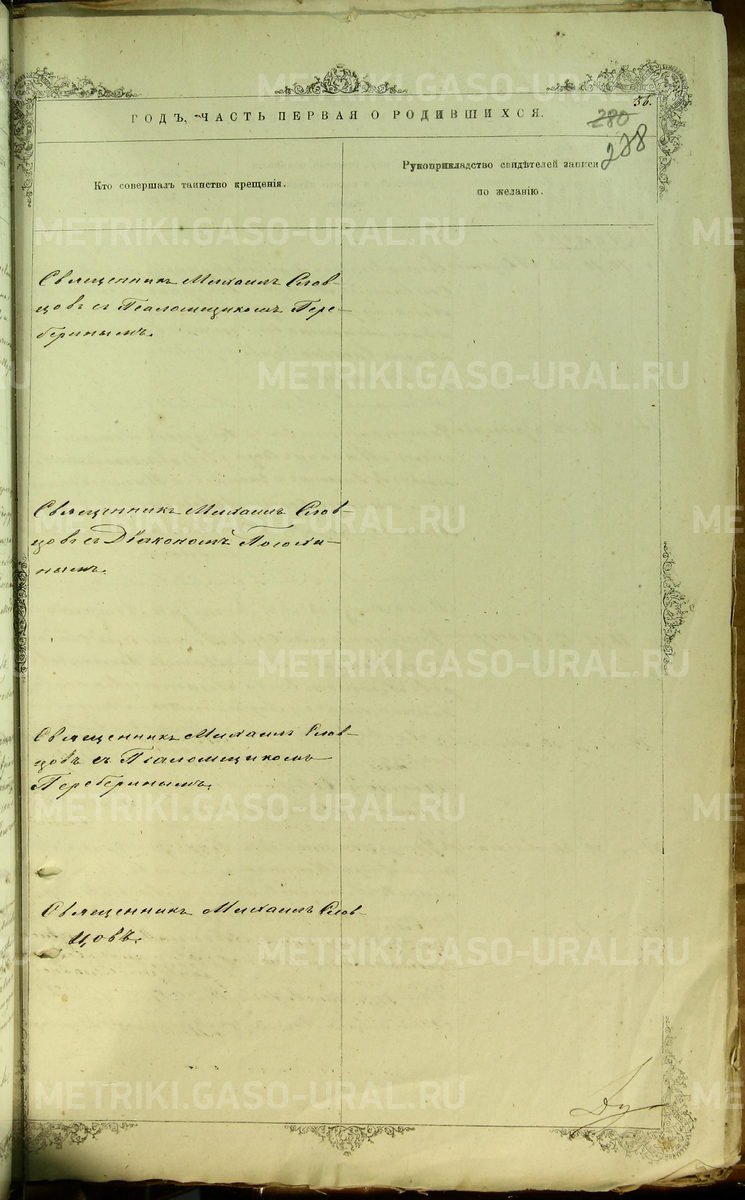 36.
ГОДЪ, ЧАСТЬ ПЕРВАЯ О РОДИВШИХСЯ.
280
288
Кто совершалъ таинство крещенія.
Рукоприкладство свидѣтелей записи
по желанію.
Священникъ Михаилъ Слов-
цовъ съ Псаломщикомъ Пере-
беринымъ.
Священникъ Михаилъ Слов-
цовъ съ Діакономъ
нымъ.
Священникъ Михаилъ Слов-
цовъ съ Псаломщикомъ
Переберинымъ.
Священникъ Михаилъ Слов-
цовъ.
METRIKI.GASO-URAL.RU